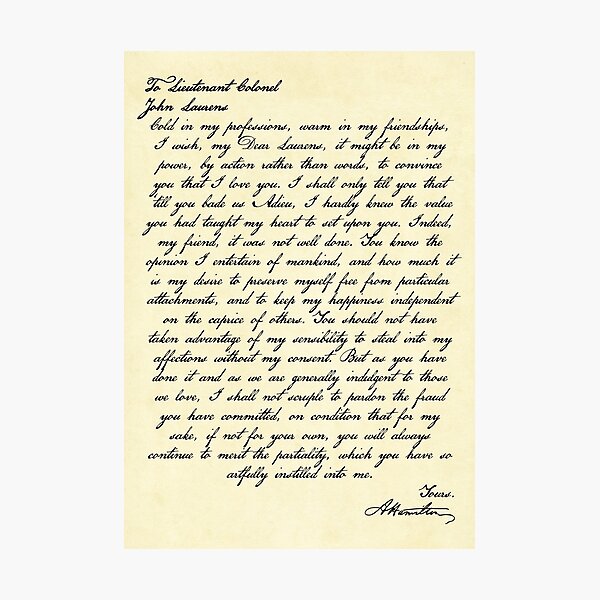 To Lieutenant Colonel
John Laurens
Cold in my professions, warm in my friendships,
I wish, my Dear Laurens, it might be in my
power, by action rather than words, to convince
you that I love you. I shall only tell you that
till you bade us Adieu, I hardly knew the value
you had taught my heart to set upon you. Indeed,
my friend, it was not well done. You know the
opinion I entertain of mankind, and how much it
is my desire to preserve myself free from particular
attachments, and to keep my happiness independent
on the caprice of others. You should not have
taken advantage of my sensibility to steal into my
affections without my consent. But as you have
done it and as we are generally indulgent to those
we love, I shall not scruple to pardon the fraud
you have committed, on condition that for my
sake, if not for your own, you will always
continue to merit the partiality, which you have so
artfully instilled into me.
Yours.
AHamilton